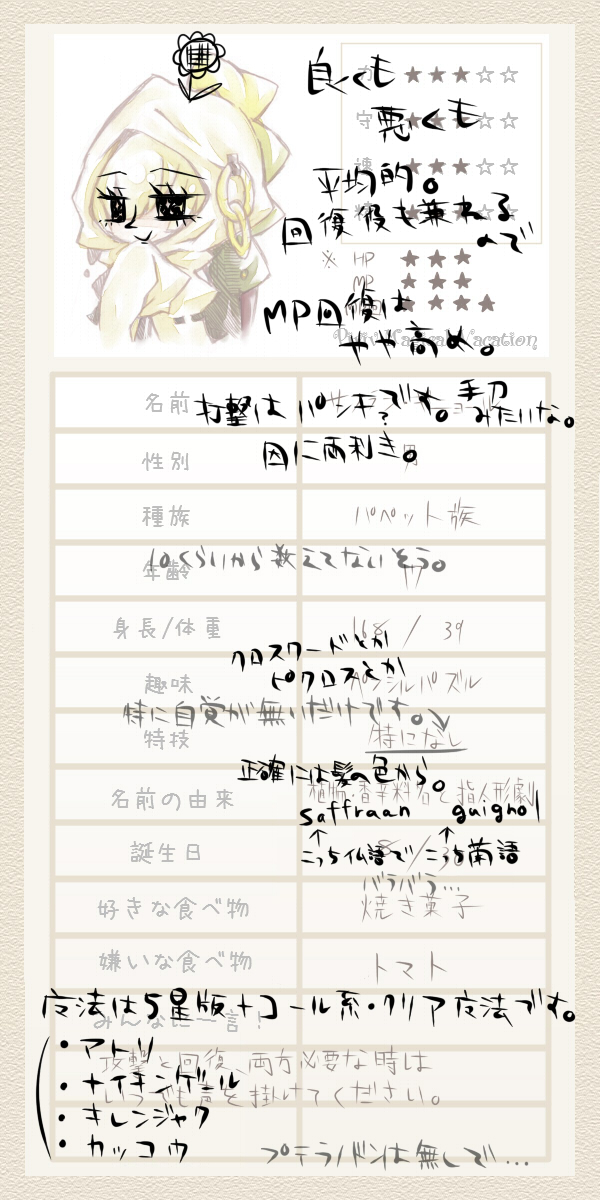 良くも
悪くも
平均的。
回復役も兼れる
ので
※ HP ★★★
MP ★★★
MP回復は
やや高め。
Magical Vacation
名前
打撃は パンチ?です。手刀
みたいな。
性別
因に両利き。
種族 パペット族
10くらいから数えてないそう。
年齢
身長/体重 168 / 39
クロスワードとか
ピクロスとか
趣味 パズル
特に自覚が無いだけです。
特技 特になし
正確には髪の色から。
名前の由来 植物・香辛料名と指人形劇
saffraan guignol
↑ ↑
誕生日 こっち仏語で こっち蘭語
バラバラ…
好きな食べ物 焼き菓子
嫌いな食べ物 トマト
魔法は5星版+コール系・クリア魔法です。
みんなに一言!
・アトリ
攻撃と回復、両方必要な時は
・ナイチンゲール
いつでも声を掛けてください。
・キレンジャク
・カッコウ
プテラノドンは無しで…